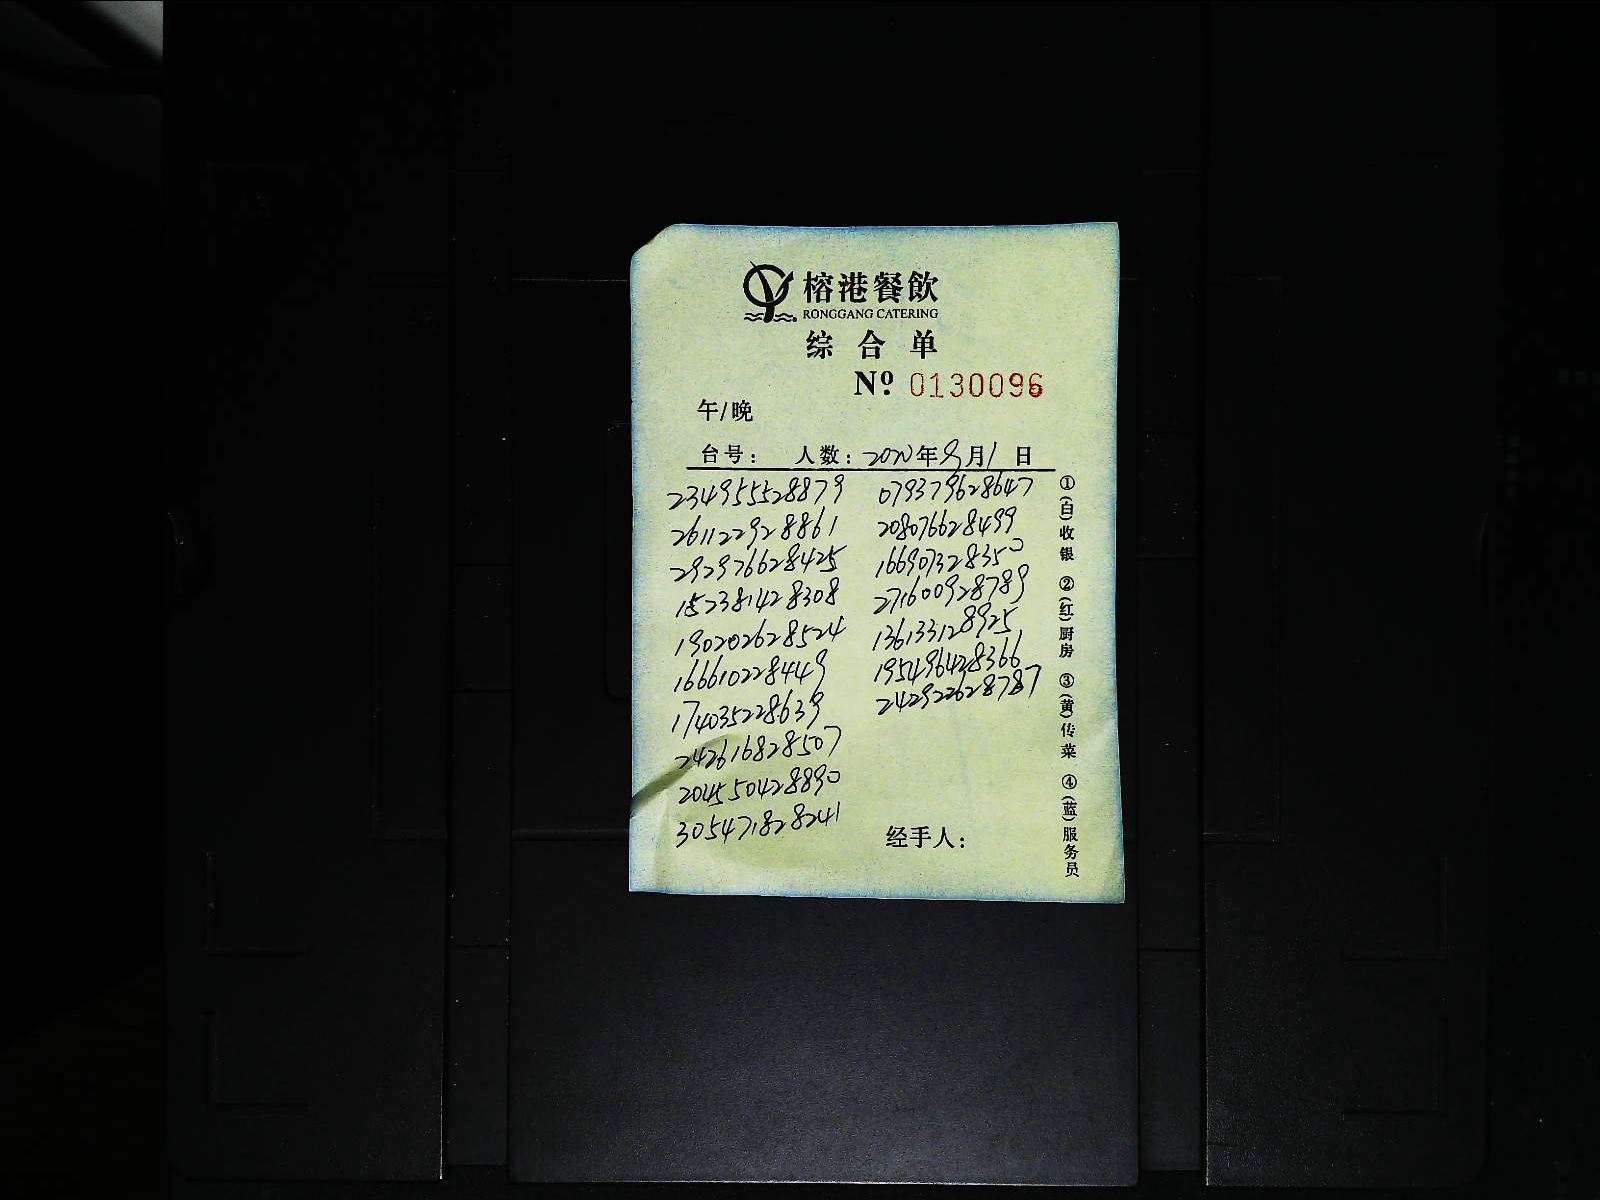 榕港餐飲
RONGGANG CATERING
综合单
Nº 0130096
午/晚
台号： 人数：2020年9月1日
234955528879
261122928861
292976628425
152381428308
190202628524
166610228449
174035228639
242616828507
204550428890
305471828241
079379628647
208076628499
166907328350
271600928789
136133128925
195496428366
242922628787
经手人：
①(白)收银 ②(红)厨房 ③(黄)传菜 ④(蓝)服务员